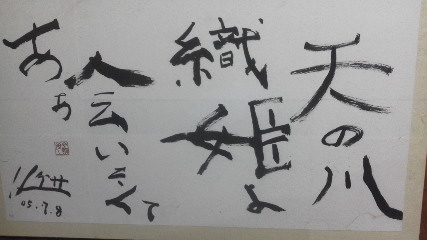 天の川
織姫よ
会いたくて
ああ
05.7.8